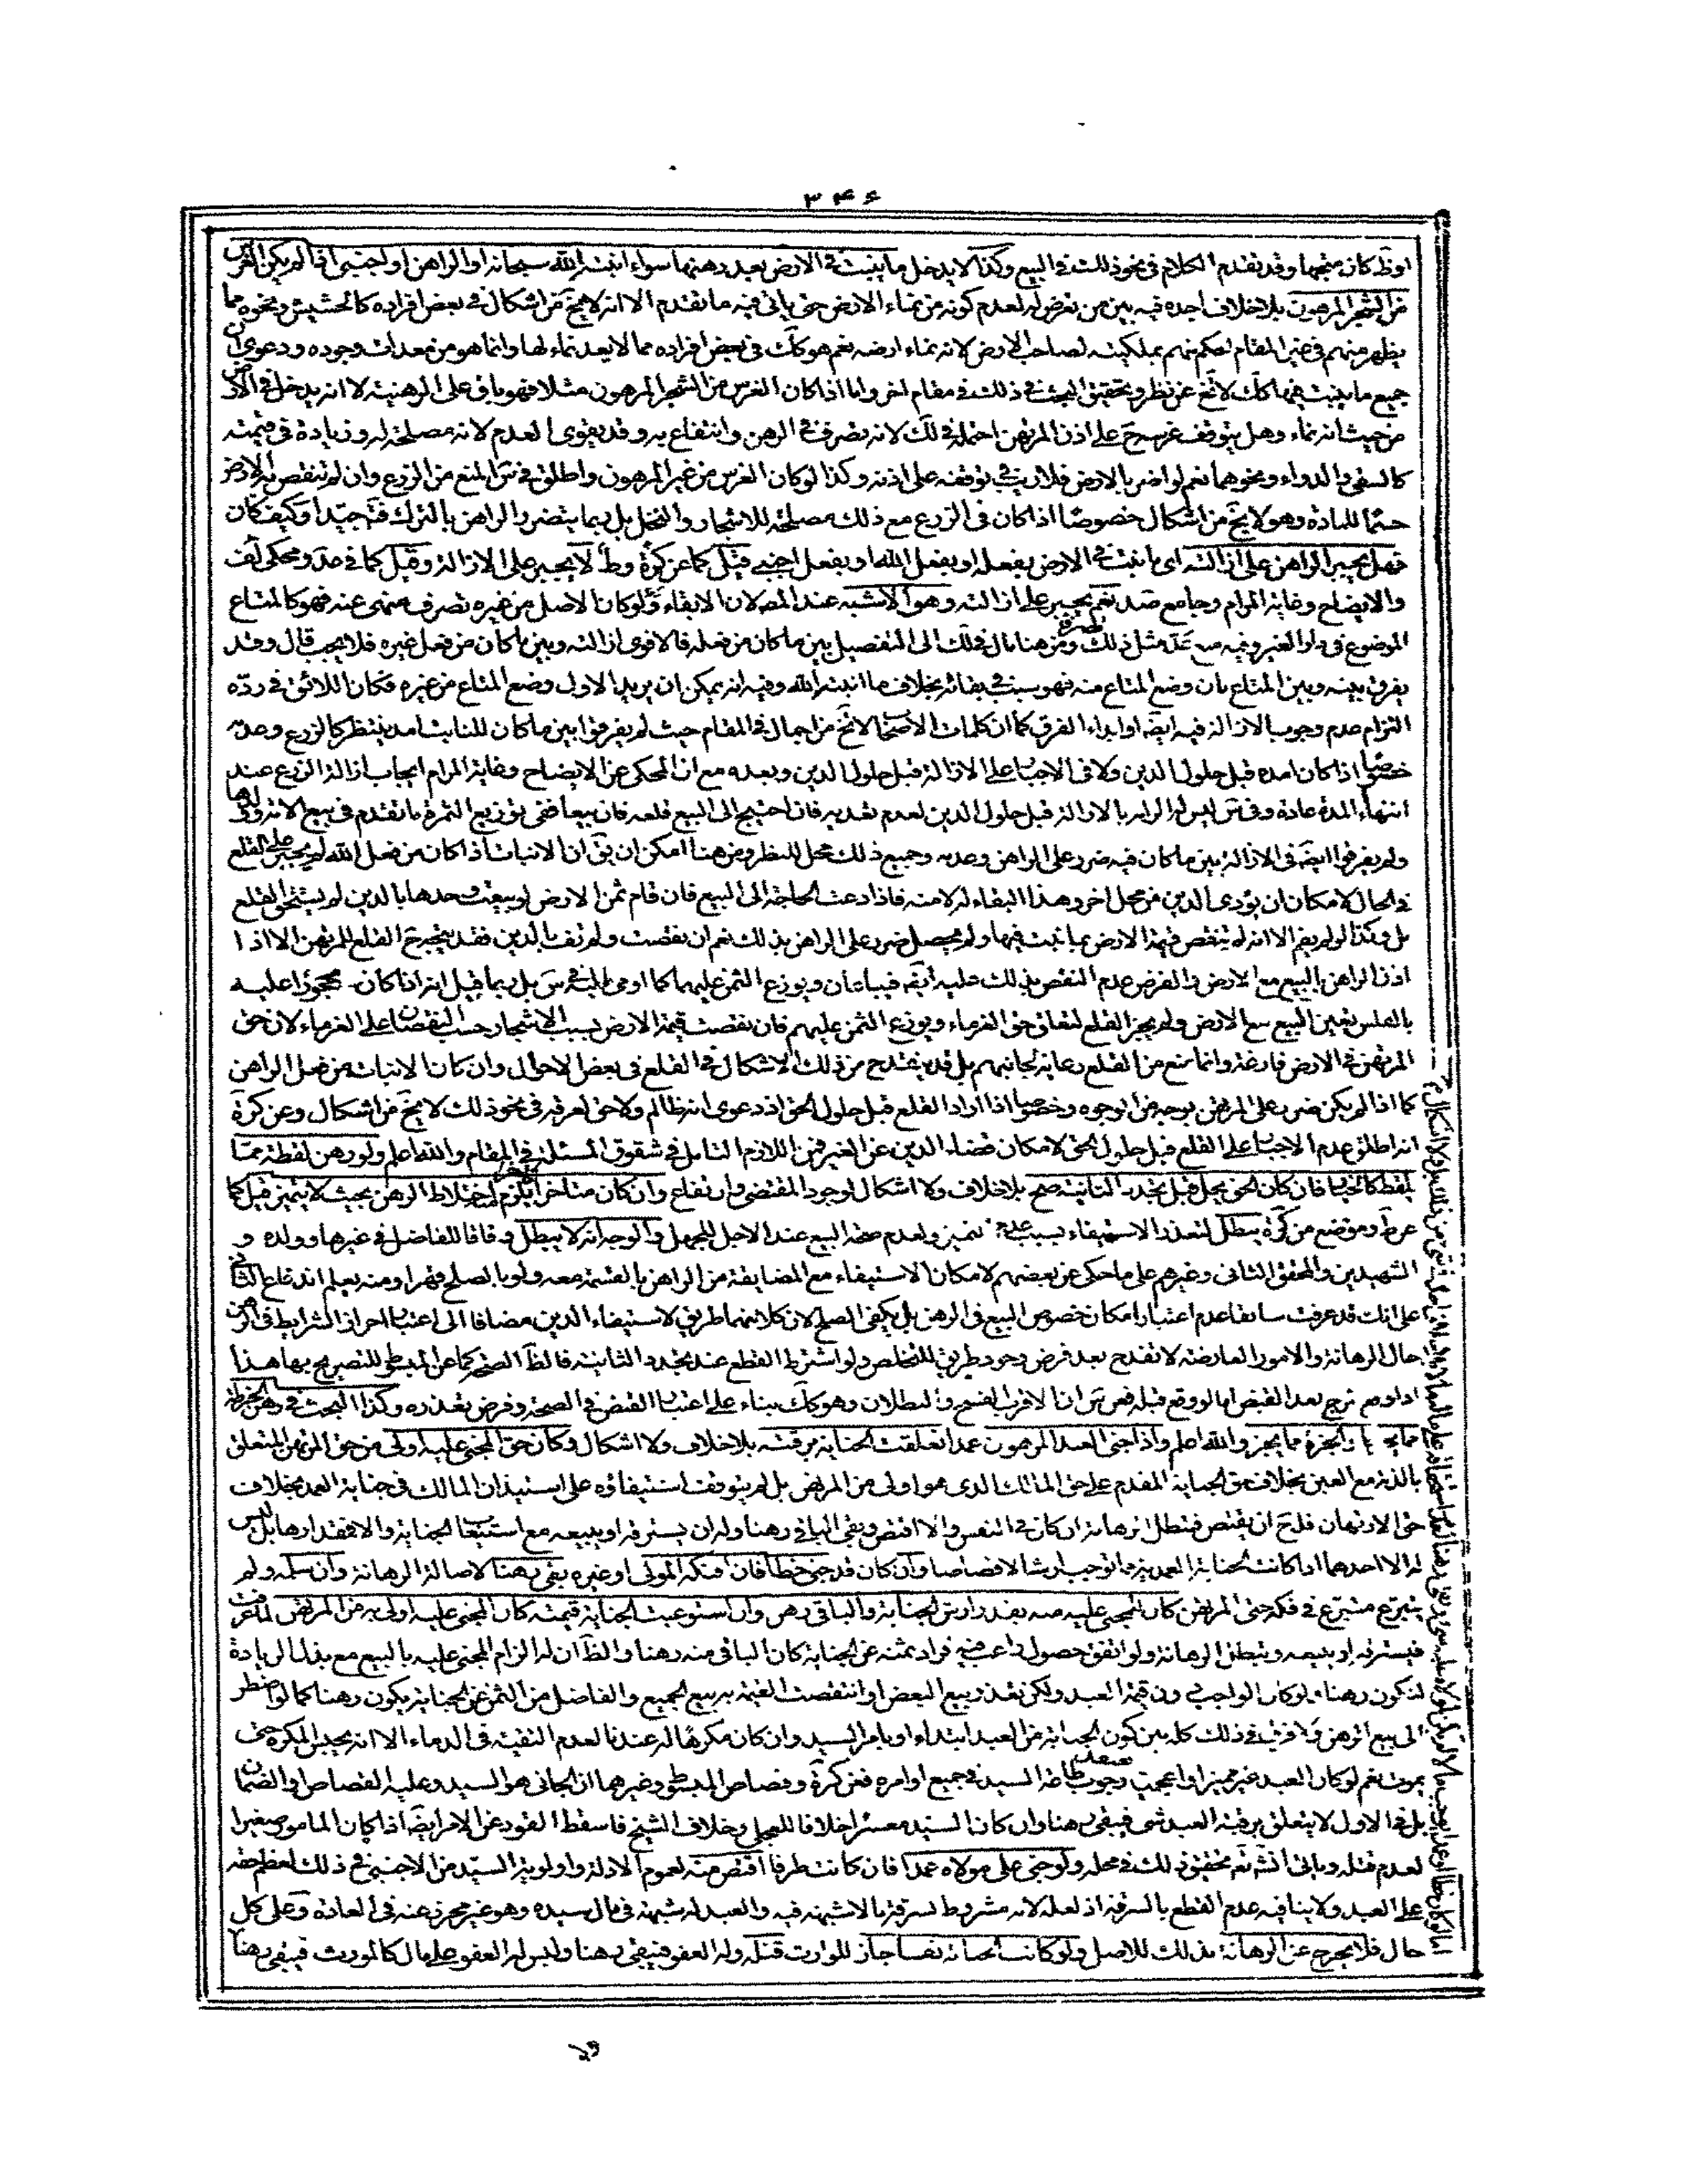 ۳۴۶
اوظ كان متجها وقد تقدم الكلام فى نحو ذلك فى البيع وكذا لا يدخل ما ينبت فى الارض بعد رهنها سواء انبته الله سبحانه او الراهن او اجنبى اذا لم يكن الغرس
من الشجر المرهون بلا خلاف اجده فيه بين من تعرض له لعدم كونه من نماء الارض حتى ياتى فيه ما تقدم الا انه لا يخ من اشكال فى بعض افراده كالحشيش ونحوه مما
يظهر منهم فى غير المقام الحكم منهم بملكيته لصاحب الارض لانه نماء ارضه نعم هو كك فى بعض افراده مما لا يعد نماء لها وانما هو من معدات وجوده ودعوى ان
جميع ما ينبت فيها كك لا تخ عن نظر وتحقيق البحث فى ذلك فى مقام اخر واما اذا كان الغرس من الشجر المرهون مثلا فهو باق على الرهنية لا انه يدخل فى الارض
من حيث انه نماء وهل يتوقف غرسه ح على اذن المرتهن احتمله فى لك لانه تصرف فى الرهن وانتفاع به وقد يقوى العدم لانه مصلحة له وزيادة فى قيمته
كالسقى والدواء ونحوهما نعم لو اضر بالارض فلا ريب فى توقفه على اذنه وكذا لو كان الغرس من غير المرهون واطلق فى س المنع من الزرع وان لم تنقص به الارض
حسما للمادة وهو لا يخ من اشكال خصوصا اذا كان فى الزرع مع ذلك مصلحة للاشجار والنخل بل ربما يتضرر الراهن بالترك فتح جيدا وكيف كان
فهل يجبر الراهن على ازالته اى ما نبت فى الارض بفعله او بفعل الله او بفعل اجنبى قيل كما عن كرة وط لا يجبر على الازالة وقيل كما فى عد ومحكى لف
والايضاح وغاية المرام وجامع صد نعم يجبر على ازالته وهو الاشبه عند المص لان الابقاء ولو كان الاصل من غيره تصرف منهى عنه فهو كالمتاع
الموضوع فى دار الغير وفيه منع عده مثل ذلك تصرفا ومن هنا مال فى لك الى التفصيل بين ما كان من فعله فالاقوى ازالته وبين ما كان من فعل غيره فلا يجب قال وقد
يفرق بينه وبين المتاع بان وضع المتاع منه فهو سبب فى بقائه بخلاف ما انبته الله وفيه انه يمكن ان يريد الاول وضع المتاع من غيره فكان اللائق فى رده
التزام عدم وجوب الازالة فيه ايضا او ابداء الفرق كما ان كلمات الاصحاب لا تخ من اجمال فى المقام حيث لم يفرقوا بين ما كان للنابت امد ينتظر كالزرع وعدمه
خصوصا اذا كان امده قبل حلول الدين ولا فى الاجبار على الازالة قبل حلول الدين وبعده مع ان المحكى عن الايضاح وغاية المرام ايجاب ازالة الزرع عند
انتهاء المدة عادة وفى س ليس له الزامه بالازالة قبل حلول الدين لعدم تعديه فان احتيج الى البيع قلعه فان بيعا ففى توزيع الثمرة ما تقدم فى بيع الام وولدها
ولم يفرقوا ايضا فى الازالة بين ما كان فيه ضرر على الراهن وعدمه وجميع ذلك محل للنظر ومن هنا امكن ان يق ان الانبات اذا كان من فعل الله لم يجبر على القلع
فى الحال لامكان ان يؤدى الدين من محل اخر وهذا البقاء له لا منه فاذا دعت الحاجة الى البيع فان قام ثمن الارض لو بيعت وحدها بالدين لم يستحق القلع
بل وكذا لو لم يقم الا انه لم تنقص قيمة الارض بما نبت فيها ولم يحصل ضرر على الراهن بذلك نعم ان نقصت ولم تف بالدين فقد يتجه ح القلع للمرتهن الا اذا
اذن الراهن بالبيع مع الارض والفرض عدم النقص بذلك عليه ايضا فيباعان ويوزع الثمن عليهما كما اومى اليه فى س بل ربما قيل انه اذا كان محجورا عليه
بالفلس تعين البيع مع الارض ولم يجز القلع لتعلق حق الغرماء ويوزع الثمن عليهم فان نقصت قيمة الارض بسبب الاشجار حسب النقصان على الغرماء لان حق
المرتهن فى الارض فارغة وانما منع من القلع رعاية لجانبهم بل قد ينقدح من ذلك الاشكال فى القلع فى بعض الاحوال وان كان الانبات من فعل الراهن
كما اذا لم يكن ضرر على المرتهن بوجه من الوجوه وخصوصا اذا اراد القلع قبل حلول الحق اذ دعوى انه ظالم ولا حق لعرقه فى نحو ذلك لا يخ من اشكال وعن كرة
انه اطلق عدم الاجبار على القلع قبل حلول الحق لامكان قضاء الدين عن الغير فمن اللازم التامل فى شقوق المسئلة فى المقام والله اعلم ولو رهن لقطة مما
يلقط كالخيار فان كان الحق يحل قبل تجدد الثانية صح بلا خلاف ولا اشكال لوجود المقتضى وارتفاع وان كان متاخرا يلزم اختلاط الرهن بحيث لا يتميز قيل كما
عن ط وموضع من كرة يبطل لتعذر الاستيفاء بسبب عدم تميزه لعدم صحة البيع عند الاجل للجهل والوجه انه لا يبطل وفاقا للفاضل فى غيرها وولده و
الشهيدين والمحقق الثانى وغيرهم على ما حكى عن بعضهم لامكان الاستيفاء مع المضايقة من الراهن بالقسمة معه ولو بالصلح قهرا ومنه يعلم اندفاع الثانى
على انك قد عرفت سابقا عدم اعتبار امكان خصوص البيع فى الرهن بل يكفى الصلح لان كلا منهما طريق لاستيفاء الدين مضافا الى اعتبار احراز الشرايط فى الرهن
حال الرهانة والامور العارضة لا تقدح بعد فرض وجود طريق للتخلص ولو اشترط القطع عند تجدد الثانية فالظ الصحة كما عن المبسوط التصريح بها هذا
اذا وقع تزج بعد القبض اما لو وقع قبله فعن س ان الاقرب الفسخ والبطلان وهو كك بناء على اعتبار القبض فى الصحة وفرض تعذره وكذا البحث فى رهن الخرطة
مما يخرط والجزة مما يجز والله اعلم واذا جنى العبد المرهون عمدا تعلقت الجناية برقبته بلا خلاف ولا اشكال وكان حق المجنى عليه اولى من حق المرتهن المتعلق
بالذمة مع العين بخلاف حق الجناية المقدم على حق المالك الذى هو اولى من المرتهن بل لم يتوقف استيفاؤه على استيذان المالك فى جناية العمد بخلاف
حق الارتهان فله ح ان يقتص فتبطل الرهانة ان كان فى النفس والا اقتص وبقى الباقى رهنا وله ان يسترقه او يبيعه مع استيعاب الجناية والا فمقدارها بل ليس
له الا احدهما اذا كانت الجناية العمدية مما توجب ارشا لا قصاصا وان كان قد جنى خطا فان افتكه المولى او غيره بقى رهنا لاصالة الرهانة وان سلمه ولم
يتبرع متبرع فى فكه حتى المرتهن كان للمجنى عليه منه بقدر ارش الجناية والباقى رهن وان استوعبت الجناية قيمته كان المجنى عليه اولى به من المرتهن لما عرفت
فيسترقه او يبيعه وتبطل الرهانة ولو اتفق حصول راغب فيه فزاد ثمنه عن الجناية كان الباقى منه رهنا والظ ان له الزام المجنى عليه بالبيع مع بذل الزيادة
لتكون رهنا ولو كان الواجب دون قيمة العبد ولكن تعذر بيع البعض او انتقصت القيمة به بيع الجميع والفاضل من الثمن عن الجناية يكون رهنا كما لو اضطر
الى بيع الرهن ولا فرق فى ذلك كله بين كون الجناية من العبد ابتداء او بامر السيد وان كان مكرها له عندنا لعدم التقية فى الدماء الا انه يحبس المكره حتى
يموت نعم لو كان العبد غير مميز او اعجمى يعتقد وجوب طاعة السيد فى جميع اوامره فعن كرة وقصاص المبسوط وغيرهما ان الجانى هو السيد وعليه القصاص او الضمان
بل فى الاول لا يتعلق برقبة العبد شئ فيبقى رهنا وان كان السيد معسرا خلافا للمحكى وخلاف الشيخ فاسقط القود عن الامر ايضا اذا كان المامور صغيرا
لعدم قتله وياتى انشاء الله تحقيق ذلك فى محله ولو جنى على مولاه عمدا فان كانت طرفا اقتص منه لعموم الادلة واولوية السيد من الاجنبى فى ذلك لعظم حقه
على العبد ولا ينافيه عدم القطع بالسرقة اذ لعله لانه مشروط بسرقة ما لا شبهة فيه والعبد له شبهة فى مال سيده وهو غير محرز عنه فى العادة وعلى كل
حال فلا يخرج عن الرهانة بذلك للاصل ولو كانت الجناية نفسا جاز للوارث قتله وله العفو فيبقى رهنا وليس له العفو على مال كالمورث فيبقى رهنا